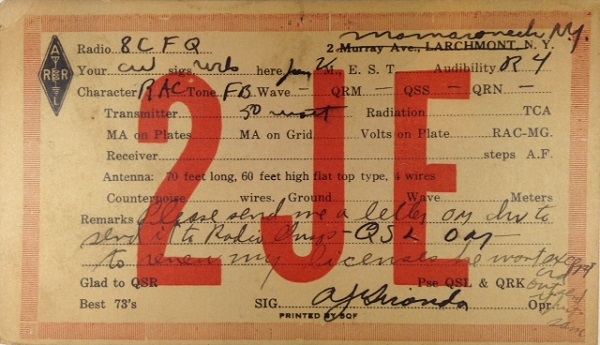 A
R R
L
2JE
Mamaroneck N.Y.
Radio 8CFQ 2 Murray Ave., LARCHMONT, N. Y.
Your CW sigs here M. E. S. T. Audibility R4
Character RAC Tone FB Wave — QRM — QSS — QRN —
Transmitter 50 watt Radiation TCA
MA on Plates MA on Grid Volts on Plate RAC-MG.
Receiver steps A.F.
Antenna: 70 feet long, 60 feet high flat top type, 4 wires
Counterpoise wires. Ground Wave Meters
Remarks Please send me a letter to
send it to Radio - QSL
to renew my licenses he wont
Glad to QSR Pse QSL & QRK
Best 73's SIG. Opr.
PRINTED BY 8CF